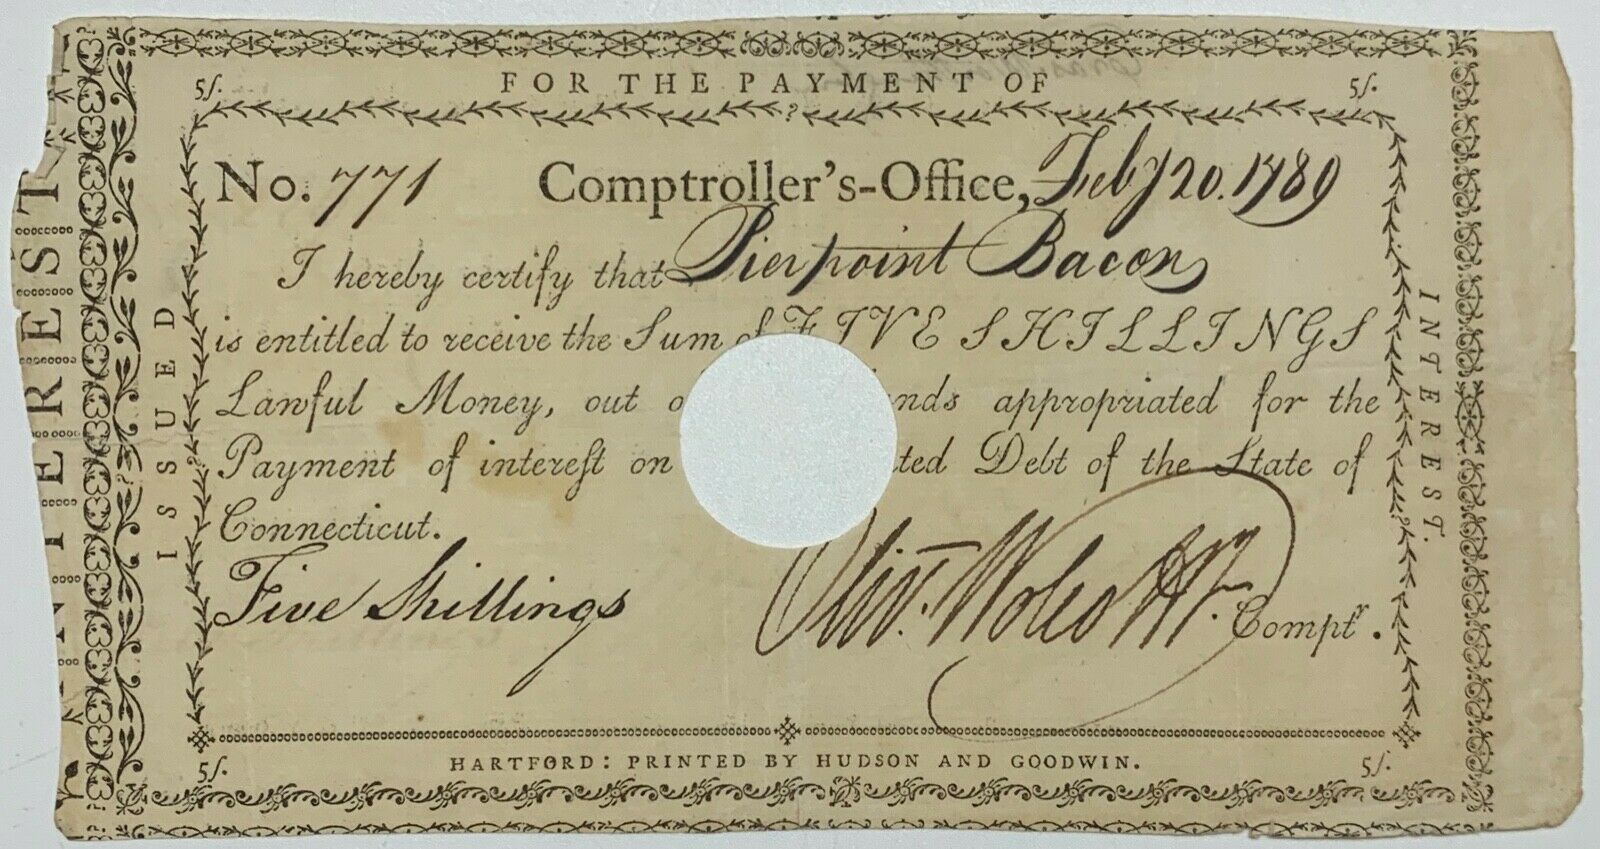 FOR THE PAYMENT OF
5ſ. 5ſ.
No. 771 Comptroller's-Office, Feby 20. 1789
I hereby certify that Pierpoint Bacon
is entitled to receive the Sum of FIVE SHILLINGS
Lawful Money, out o nds appropriated for the
Payment of intereſt on ted Debt of the State of
Connecticut.
Five Shillings Olivr. Wolcott Jr. Comptr.
HARTFORD: PRINTED BY HUDSON AND GOODWIN.
5ſ. 5ſ.
ISSUED
INTEREST.
INTEREST